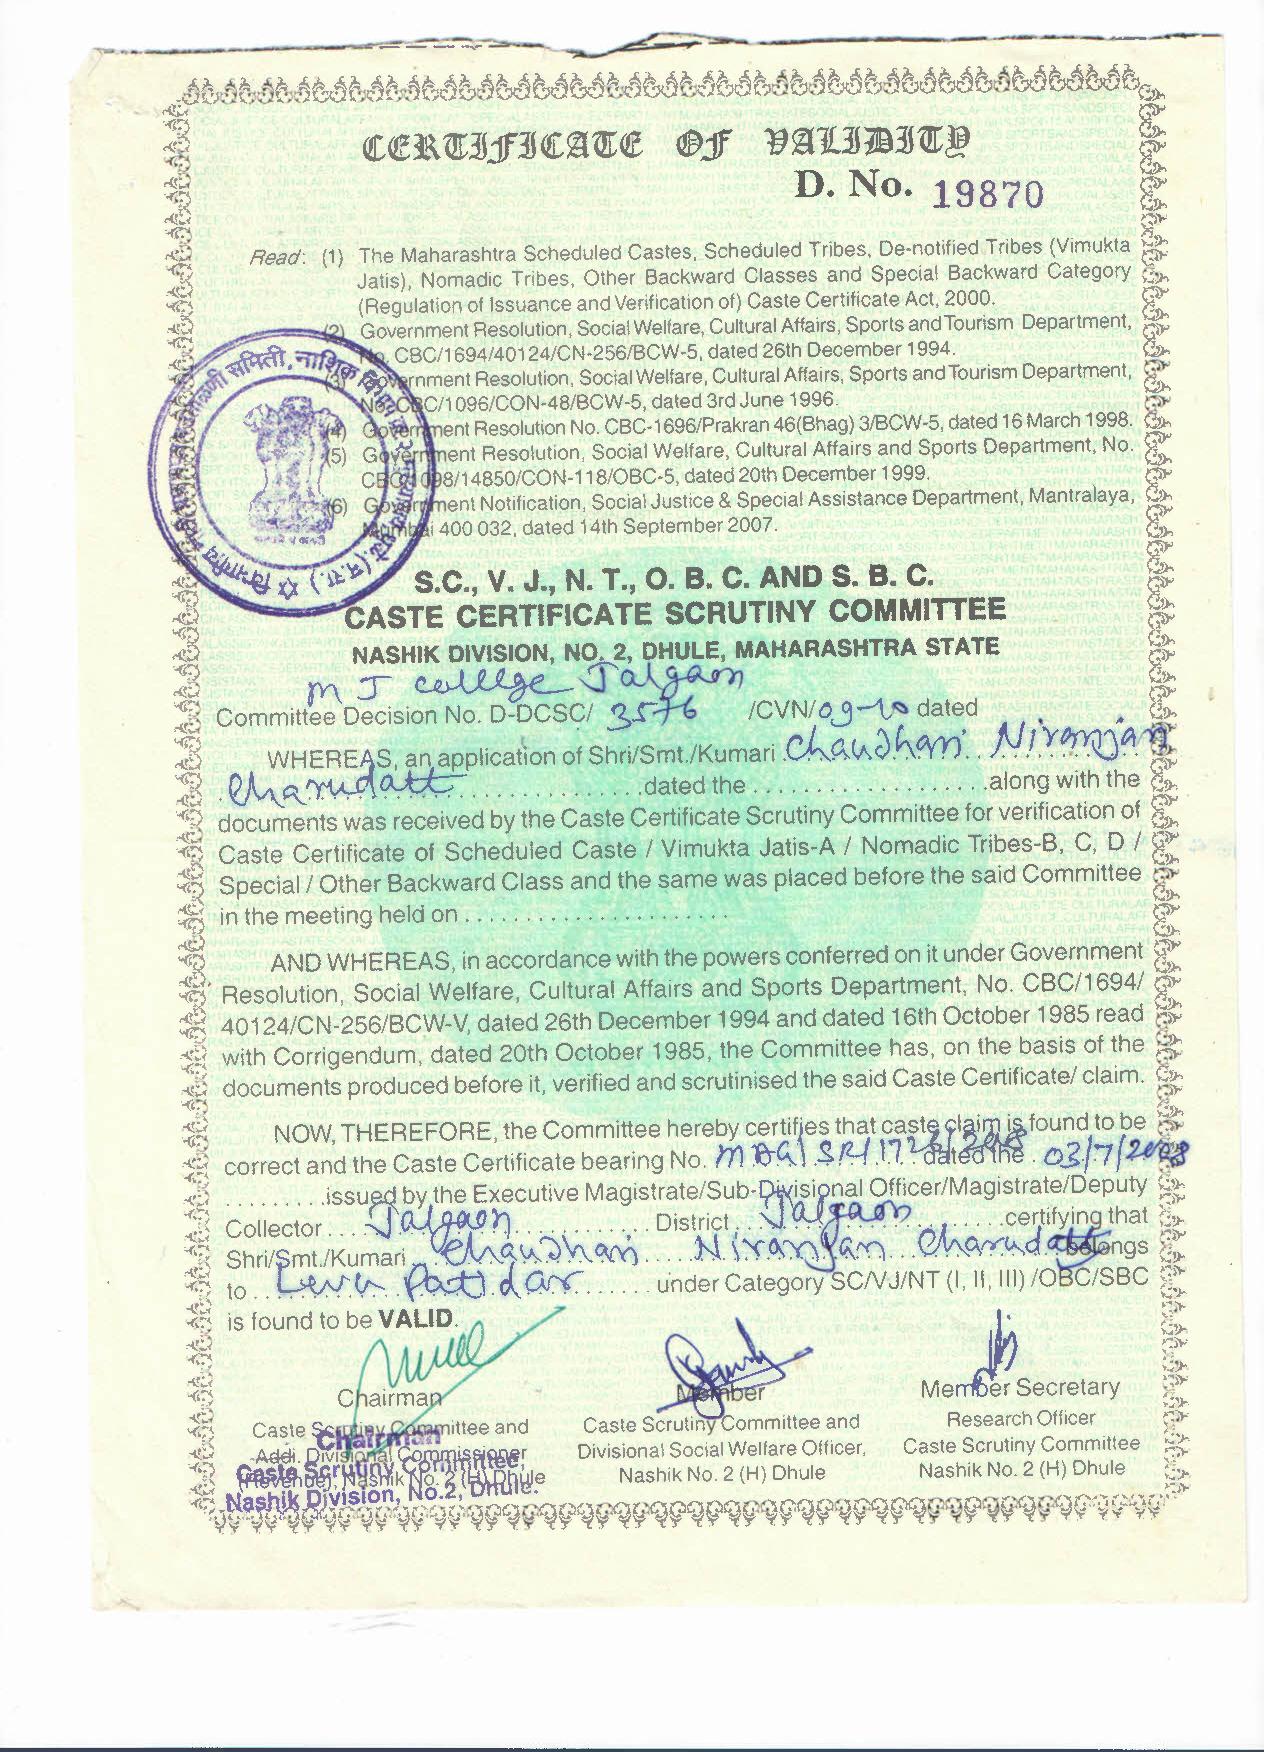 CERTIFICATE OF VALIDITY
D. No. 19870
Read: (1) The Maharashtra Scheduled Castes, Scheduled Tribes, De-notified Tribes (Vimukta
Jatis), Nomadic Tribes, Other Backward Classes and Special Backward Category
(Regulation of Issuance and Verification of) Caste Certificate Act, 2000.
(2) Government Resolution, Social Welfare, Cultural Affairs, Sports and Tourism Department,
No. CBC/1694/40124/CN-256/BCW-5, dated 26th December 1994.
(3) Government Resolution, Social Welfare, Cultural Affairs, Sports and Tourism Department,
No. CBC/1096/CON-48/BCW-5, dated 3rd June 1996.
(4) Government Resolution No. CBC-1696/Prakran 46(Bhag) 3/BCW-5, dated 16 March 1998.
(5) Government Resolution, Social Welfare, Cultural Affairs and Sports Department, No.
CBC/1098/14850/CON-118/OBC-5, dated 20th December 1999.
(6) Government Notification, Social Justice & Special Assistance Department, Mantralaya,
Mumbai 400 032, dated 14th September 2007.
समिती, नाशिक
S.C., V. J., N. T., O. B. C. AND S. B. C.
CASTE CERTIFICATE SCRUTINY COMMITTEE
NASHIK DIVISION, NO. 2, DHULE, MAHARASHTRA STATE
M J college Jalgaon
Committee Decision No. D-DCSC/ 3576 /CVN/09-10 dated
WHEREAS, an application of Shri/Smt./Kumari Chaudhari Niranjan
Charudatt dated the along with the
documents was received by the Caste Certificate Scrutiny Committee for verification of
Caste Certificate of Scheduled Caste / Vimukta Jatis-A / Nomadic Tribes-B, C, D /
Special / Other Backward Class and the same was placed before the said Committee
in the meeting held on
AND WHEREAS, in accordance with the powers conferred on it under Government
Resolution, Social Welfare, Cultural Affairs and Sports Department, No. CBC/1694/
40124/CN-256/BCW-V, dated 26th December 1994 and dated 16th October 1985 read
with Corrigendum, dated 20th October 1985, the Committee has, on the basis of the
documents produced before it, verified and scrutinised the said Caste Certificate/ claim.
NOW, THEREFORE, the Committee hereby certifies that caste claim is found to be
correct and the Caste Certificate bearing No. dated the 03/7/2008
issued by the Executive Magistrate/Sub-Divisional Officer/Magistrate/Deputy
Collector Jalgaon District Jalgaon certifying that
Shri/Smt./Kumari Chaudhari Niranjan Charudatt belongs
to Leva Patidar under Category SC/VJ/NT (I, II, III) /OBC/SBC
is found to be VALID.
Chairman
Caste Scrutiny Committee and
Addl. Divisional Commissioner
(Revenue), Nashik No. 2 (H) Dhule
Chairman
Caste Scrutiny Committee,
Nashik Division, No.2, Dhule.
Member
Caste Scrutiny Committee and
Divisional Social Welfare Officer,
Nashik No. 2 (H) Dhule
Member Secretary
Research Officer
Caste Scrutiny Committee
Nashik No. 2 (H) Dhule